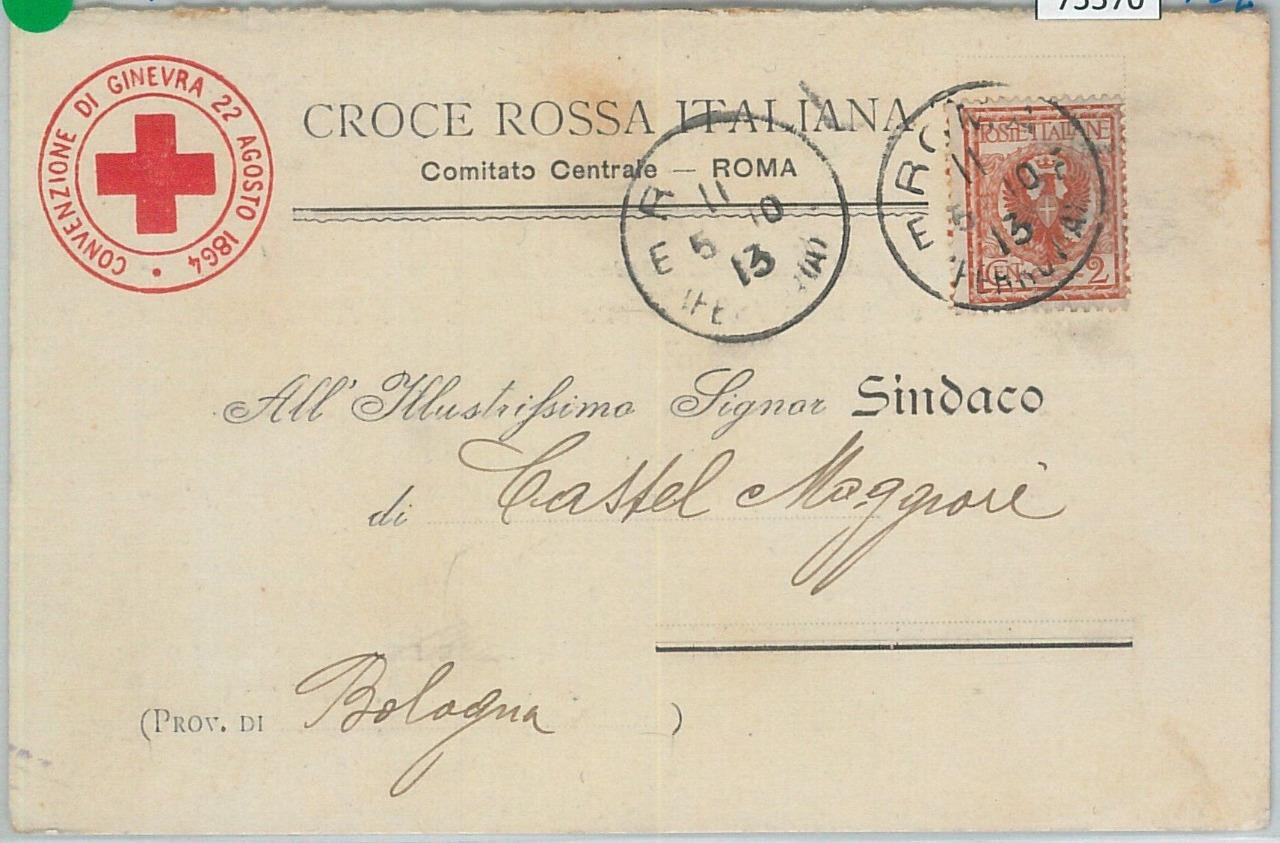 CONVENZIONE DI GINEVRA 22 AGOSTO 1864 •
CROCE ROSSA ITALIANA
Comitato Centrale — ROMA
POSTE ITALIANE
CENT. 2
ROMA
11
5 10
13
(FERROVIA)
11
5 10
13
All' Illustrissimo Signor Sindaco
di Castel Maggiore
(PROV. DI Bologna )